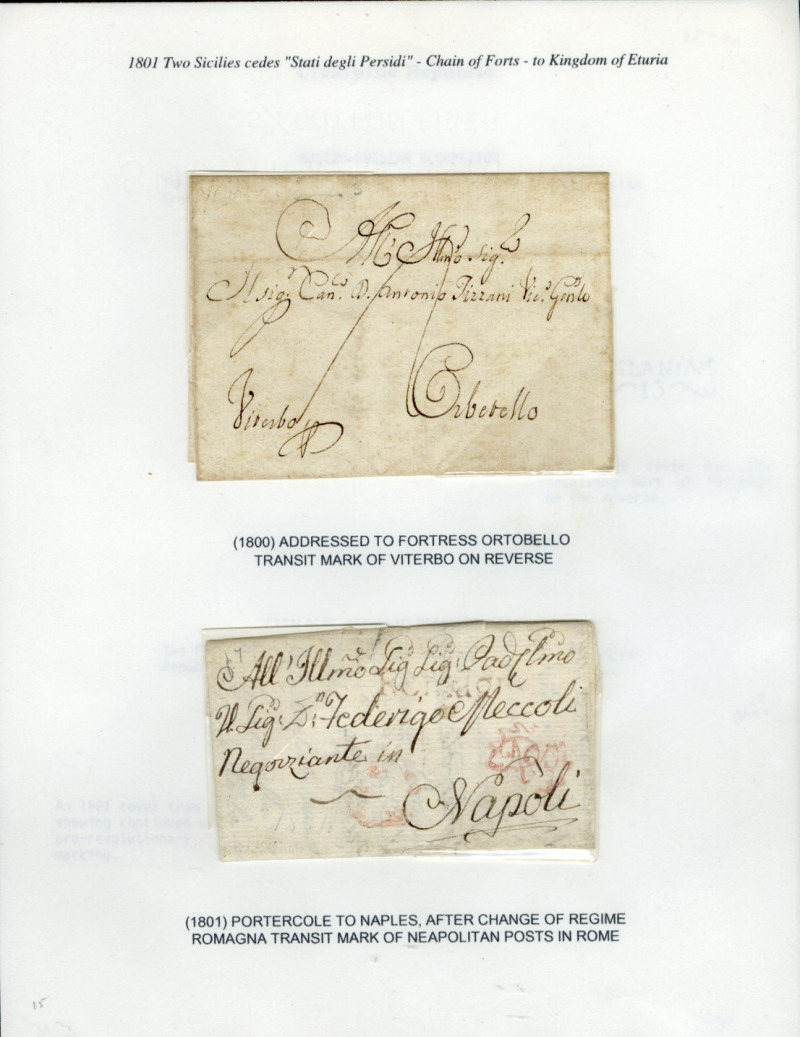 1801 Two Sicilies cedes "Stati degli Persidi" - Chain of Forts - to Kingdom of Eturia
All' Illmo Sig.
Il Sig. Can.co D. Antonio Tizzani Vic. Genle
Viterbo Orbetello
(1800) ADDRESSED TO FORTRESS ORTOBELLO
TRANSIT MARK OF VITERBO ON REVERSE
17
All' Illmo Sig Sig: Pad
Il Sig: Dn: Federigo Meccoli
Negozziante in
Napoli
(1801) PORTERCOLE TO NAPLES, AFTER CHANGE OF REGIME
ROMAGNA TRANSIT MARK OF NEAPOLITAN POSTS IN ROME
15